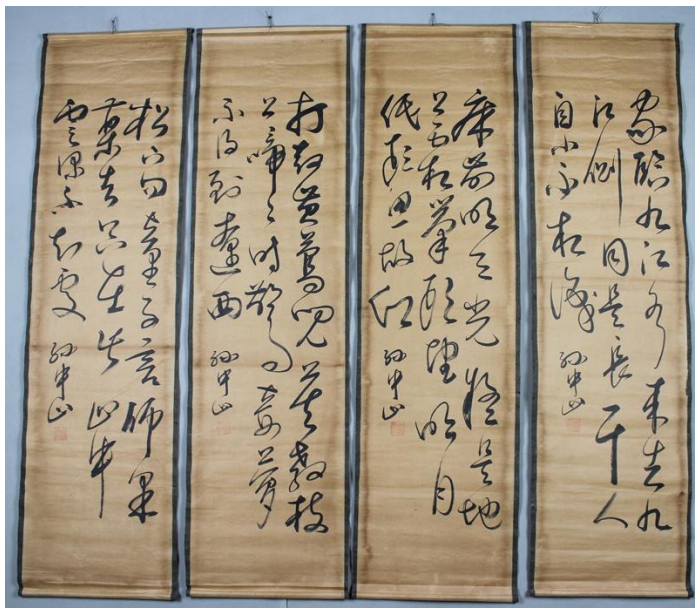 家臨九江水来去九
江側同是長干人
自小不相識 孫中山
床前明月光疑是地
上霜舉頭望明月
低頭思故鄉 孫中山
打起黃鶯兒莫教枝
上啼々時驚妾夢
不得到遼西 孫中山
松下問童子言師采
藥去只在此山中
雲深不知處 孫中山